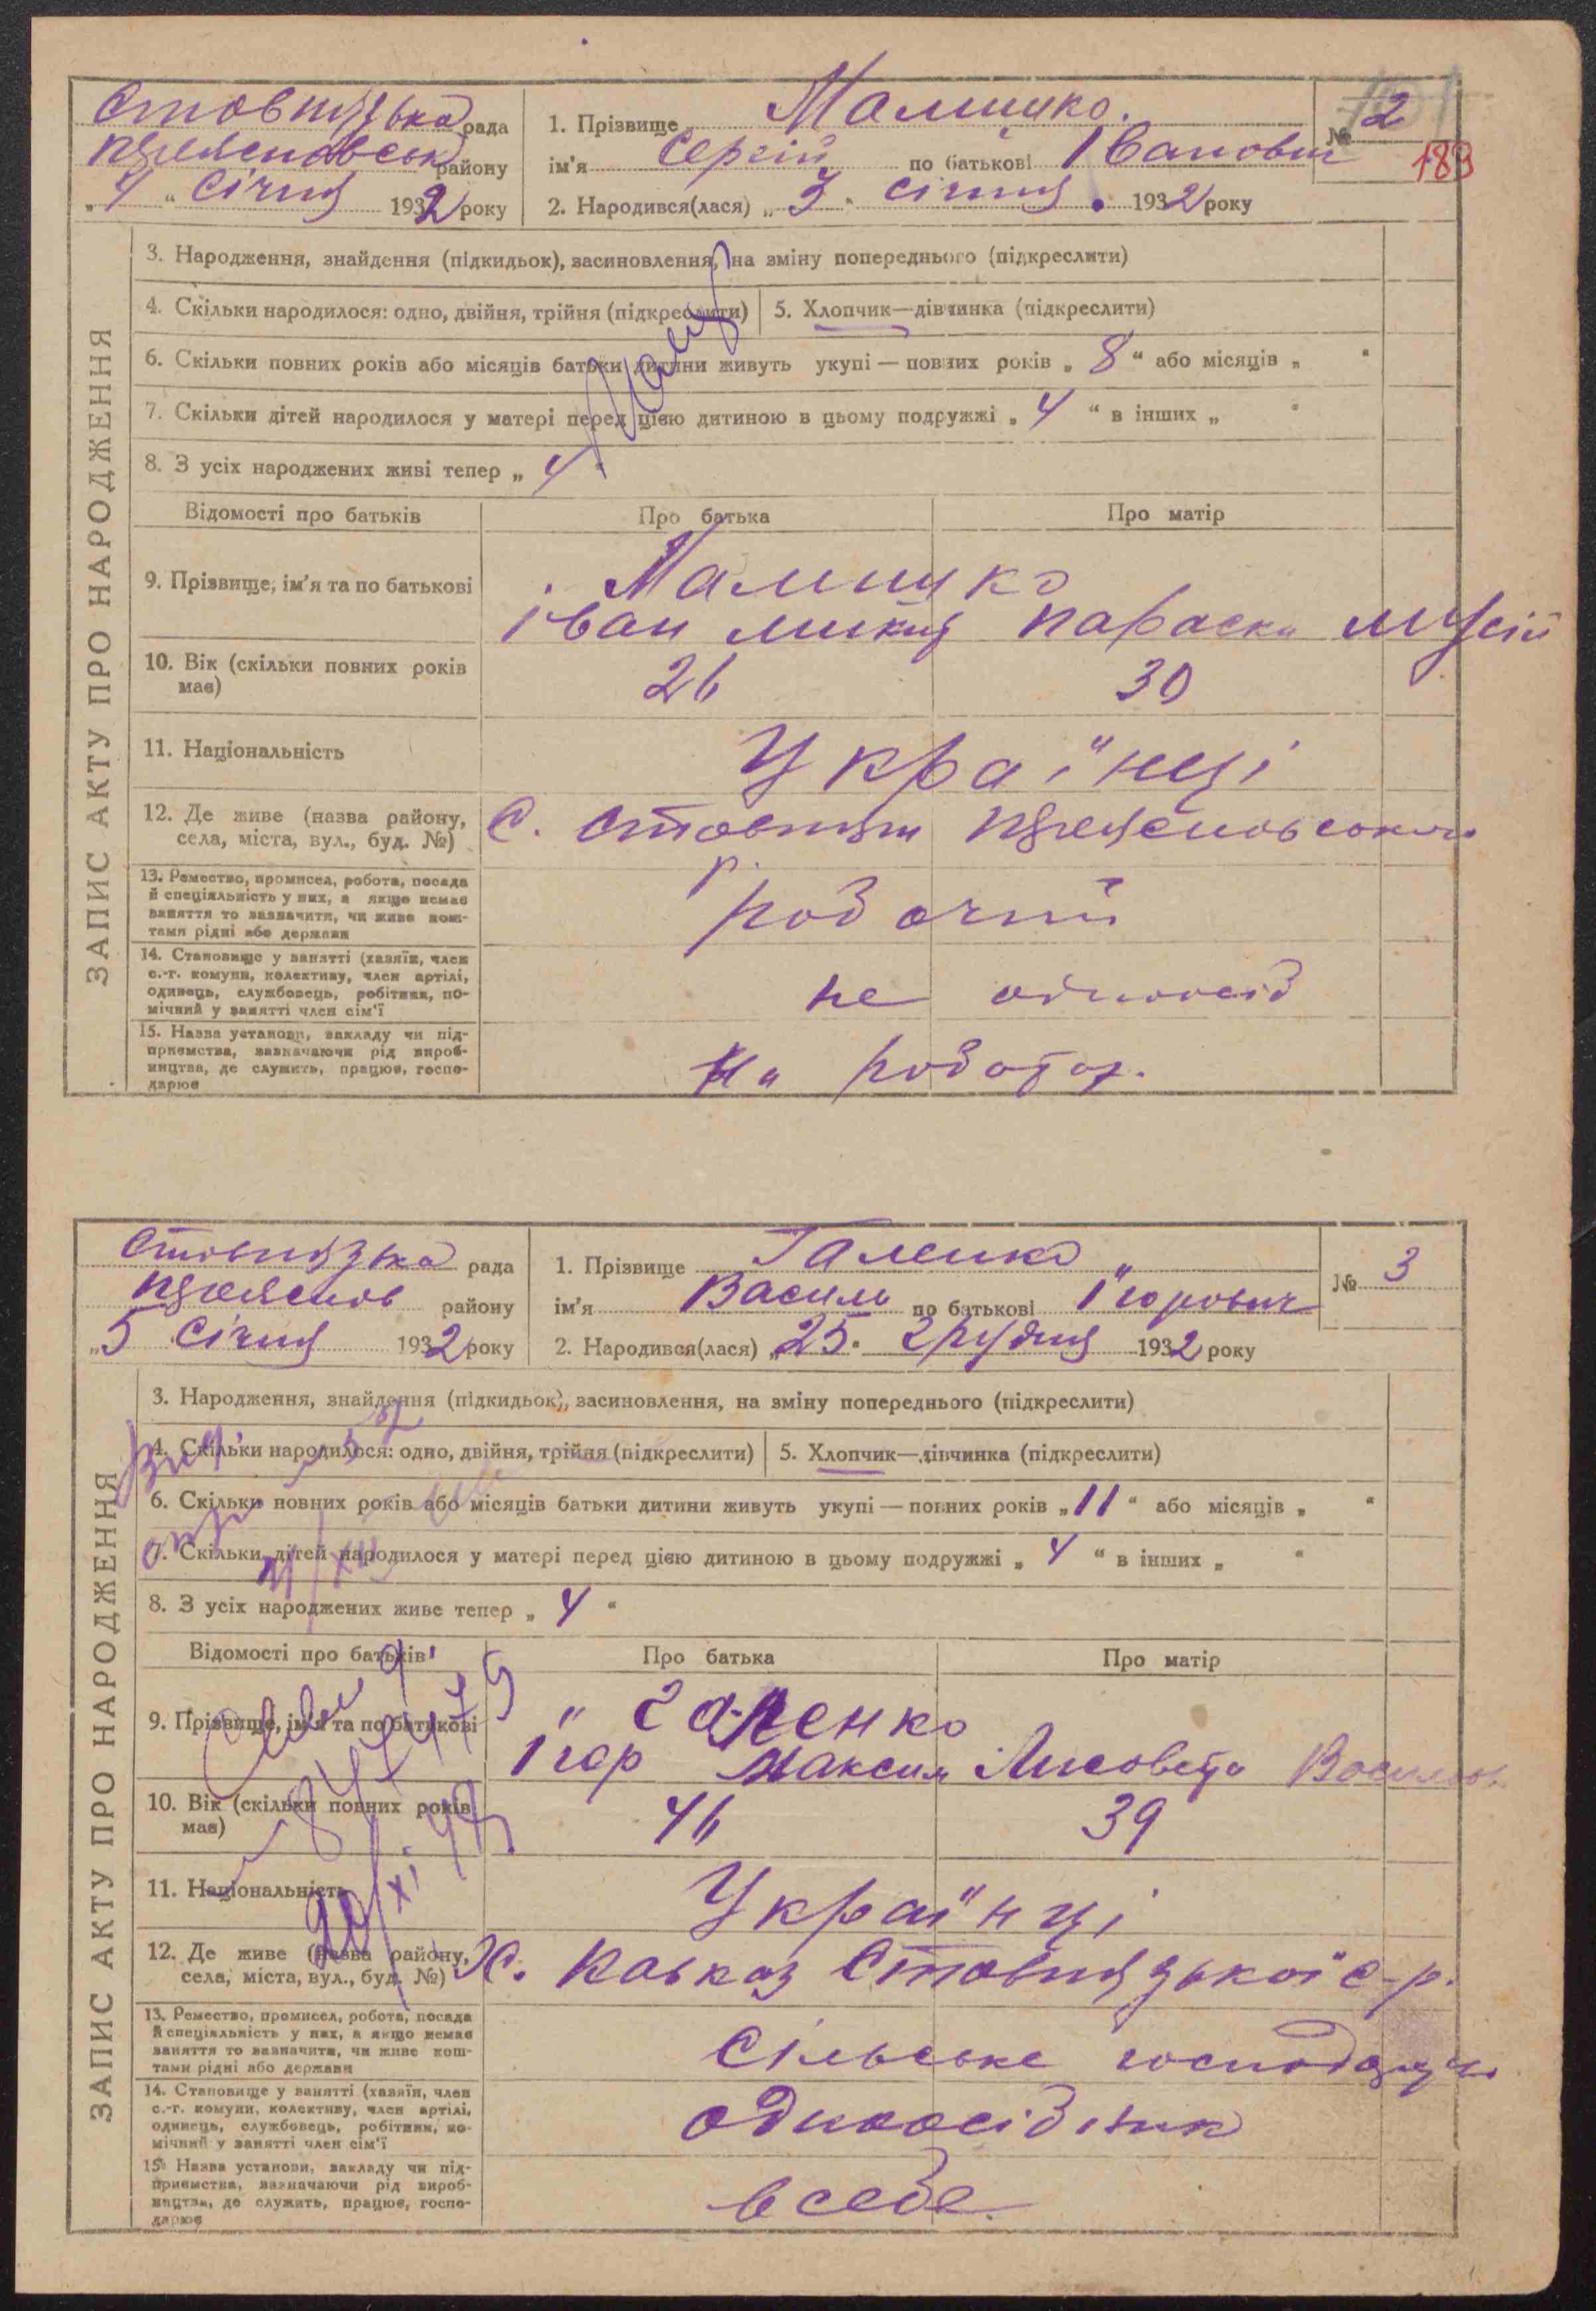 Стовпязька рада
району
„4“ Січня 1932 року
1. Прізвище Малишко.
ім'я Сергій по батькові Іванович
2. Народився(лася) „3“ січня 1932 року
№ 2
183
ЗАПИС АКТУ ПРО НАРОДЖЕННЯ
3. Народження, знайдення (підкидьок), засиновлення, на зміну попереднього (підкреслити)
4. Скільки народилося: одно, двійня, трійня (підкреслити)
5. Хлопчик—дівчинка (підкреслити)
6. Скільки повних років або місяців батьки дитини живуть укупі — повних років „8“ або місяців „ “
7. Скільки дітей народилося у матері перед цією дитиною в цьому подружжі „4“ в інших „ “
8. З усіх народжених живі тепер „4“
Відомості про батьків
Про батька
Про матір
9. Прізвище, ім'я та по батькові
Малишко
Іван Мусій
10. Вік (скільки повних років
має)
26
30
11. Національність
Українці
12. Де живе (назва району,
села, міста, вул., буд. №)
с. Стовпяги
13. Ремество, промисел, робота, посада
й спеціяльність у них, а якщо немає
заняття то зазначити, чи живе кош-
тами рідні або держави
робочий
14. Становище у занятті (хазяїн, член
с.-г. комуни, колективу, член артілі,
одинець, службовець, робітник, по-
мічний у занятті член сім'ї
не
15. Назва установи, закладу чи під-
приємства, зазначаючи рід вироб-
ництва, де служить, працює, госпо-
дарює
На
Стовпязька рада
району
„5“ Січня 1932 року
1. Прізвище Галенко
ім'я Василь по батькові Ігорович
2. Народився(лася) „25. грудня 1932 року
№ 3
ЗАПИС АКТУ ПРО НАРОДЖЕННЯ
3. Народження, знайдення (підкидьок), засиновлення, на зміну попереднього (підкреслити)
4. Скільки народилося: одно, двійня, трійня (підкреслити)
5. Хлопчик—дівчинка (підкреслити)
6. Скільки повних років або місяців батьки дитини живуть укупі — повних років „11“ або місяців „ “
7. Скільки дітей народилося у матері перед цією дитиною в цьому подружжі „4“ в інших „ “
8. З усіх народжених живе тепер „4“
Відомості про батьків
Про батька
Про матір
9. Прізвище, ім'я та по батькові
Галенко
Ігор Максим Лисовета
10. Вік (скільки повних років
має)
46
39
11. Національність
Українці
12. Де живе (назва району,
села, міста, вул., буд. №)
Х. Кавказ Стовпязької с-р.
13. Ремество, промисел, робота, посада
й спеціяльність у них, а якщо немає
заняття то зазначити, чи живе кош-
тами рідні або держави
Сільське
14. Становище у занятті (хазяїн, член
с.-г. комуни, колективу, член артілі,
одинець, службовець, робітник, по-
мічний у занятті член сім'ї
одноосібник
15. Назва установи, закладу чи під-
приємства, зазначаючи рід вироб-
ництва, де служить, працює, госпо-
дарює
в себе